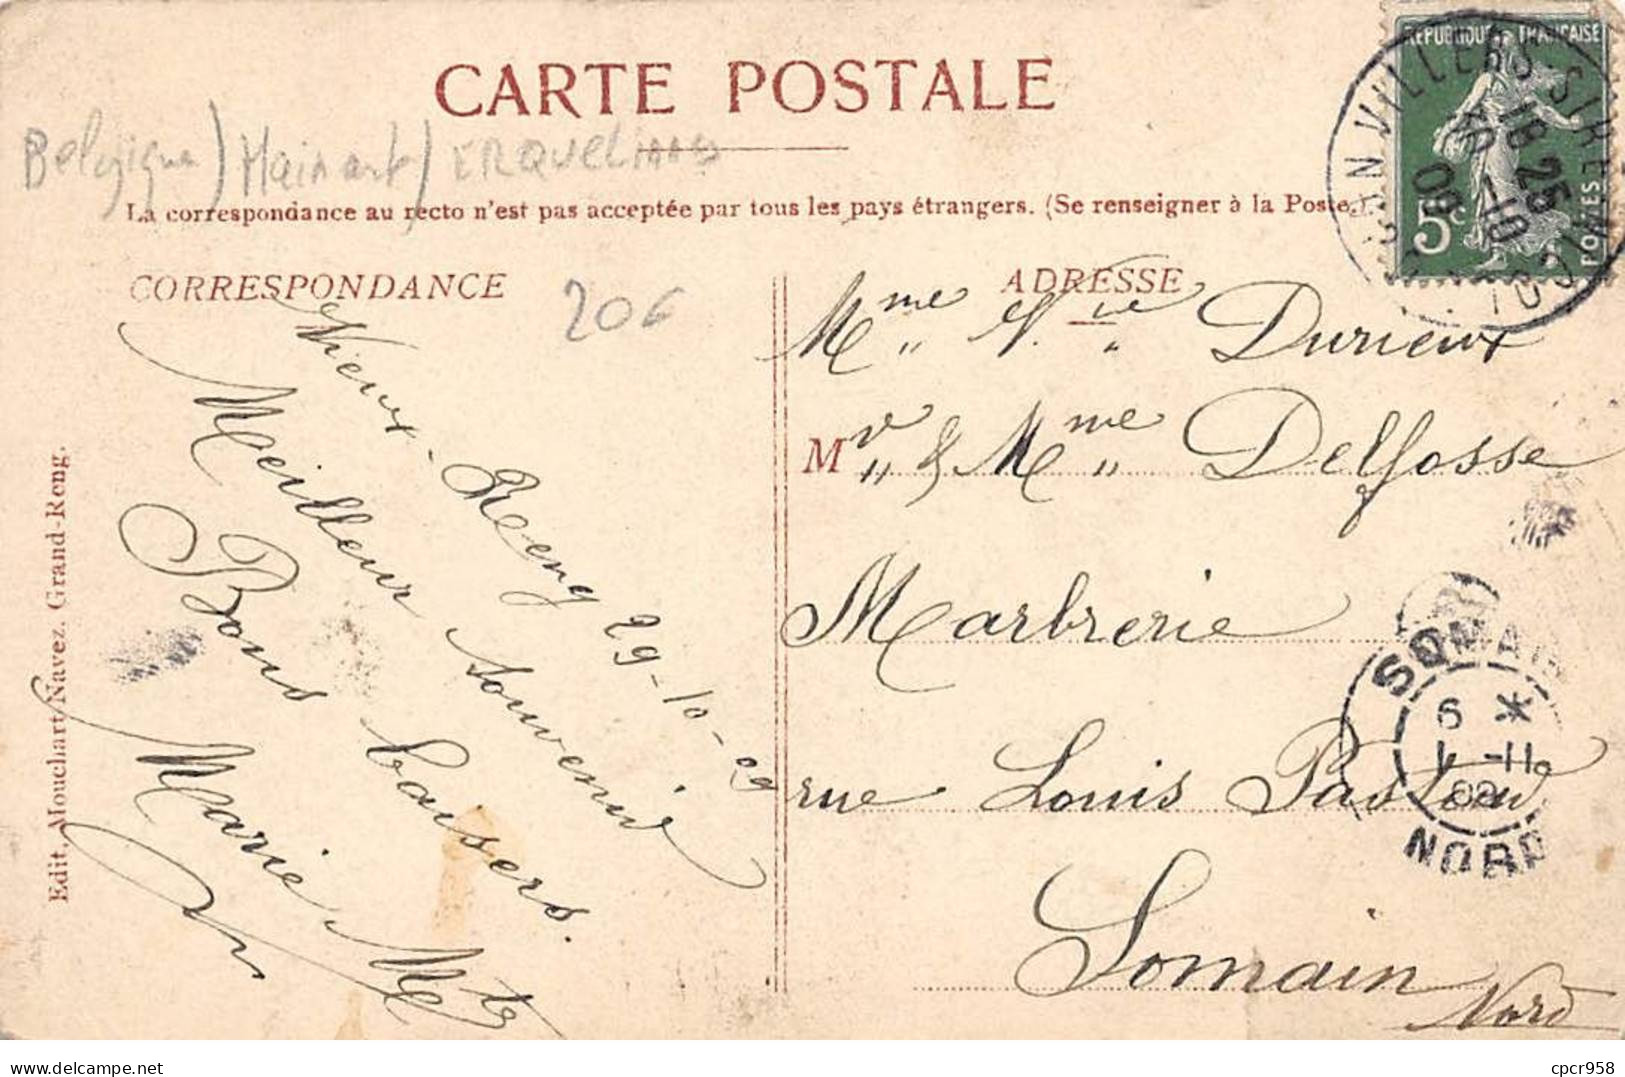 CARTE POSTALE
Belgique) Hainaut) ERQUELINNES
La correspondance au recto n'est pas acceptée par tous les pays étrangers. (Se renseigner à la Poste.)
REPUBLIQUE FRANCAISE
5c
POSTES
VILLERS-SIRE-NICOLE
18 25
30 -10
09
CORRESPONDANCE
20€
Vieux-Reng 29-10-09
Meilleur souvenir
Bons baisers.
Marie
Edit. Mouchart Navez. Grand-Reng.
ADRESSE
Mme Vve Durieux
Mr & Mme Delfosse
Marbrerie
rue Louis Pasteur
Somain
Nord
SOMAIN
6 *
1 -11
09
NORD
delcampe.net
cpcr958